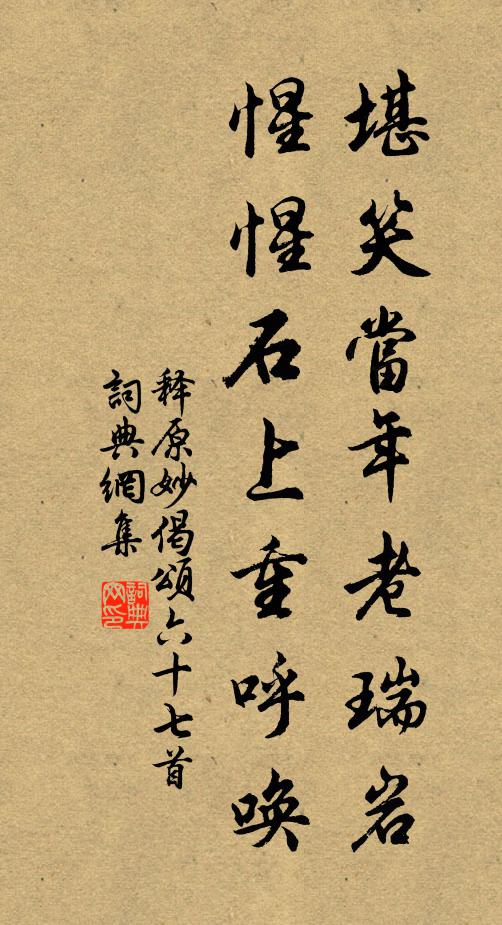 堪笑當年老瑞岩
惺惺石上重呼喚
释原妙偈頌六十七首
詞典網集
詞典網印